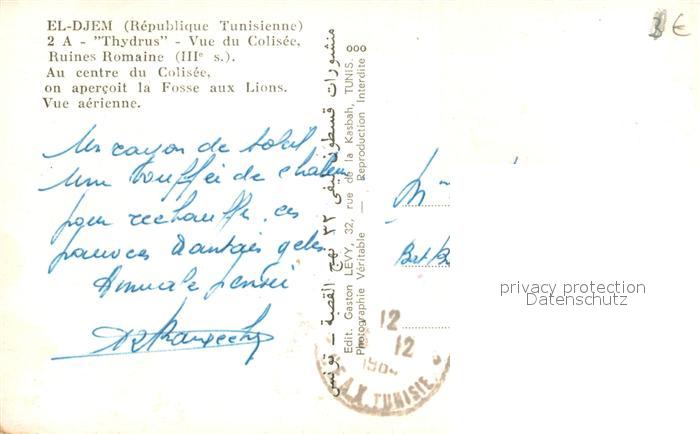 EL-DJEM (République Tunisienne)
2 A - "Thydrus" - Vue du Colisée,
Ruines Romaine (IIIe s.).
Au centre du Colisée,
on aperçoit la Fosse aux Lions.
Vue aérienne.
Un rayon de soleil
Une bouffée de chaleur
pour rechauffer ces
pauvres Nantais gelés
Amicale pensée
Edit. Gaston LEVY, 32, rue de la Kasbah, TUNIS.
Photographie Véritable — Reproduction Interdite
000
3 €
privacy protection
Datenschutz
12
12
TUNISIE